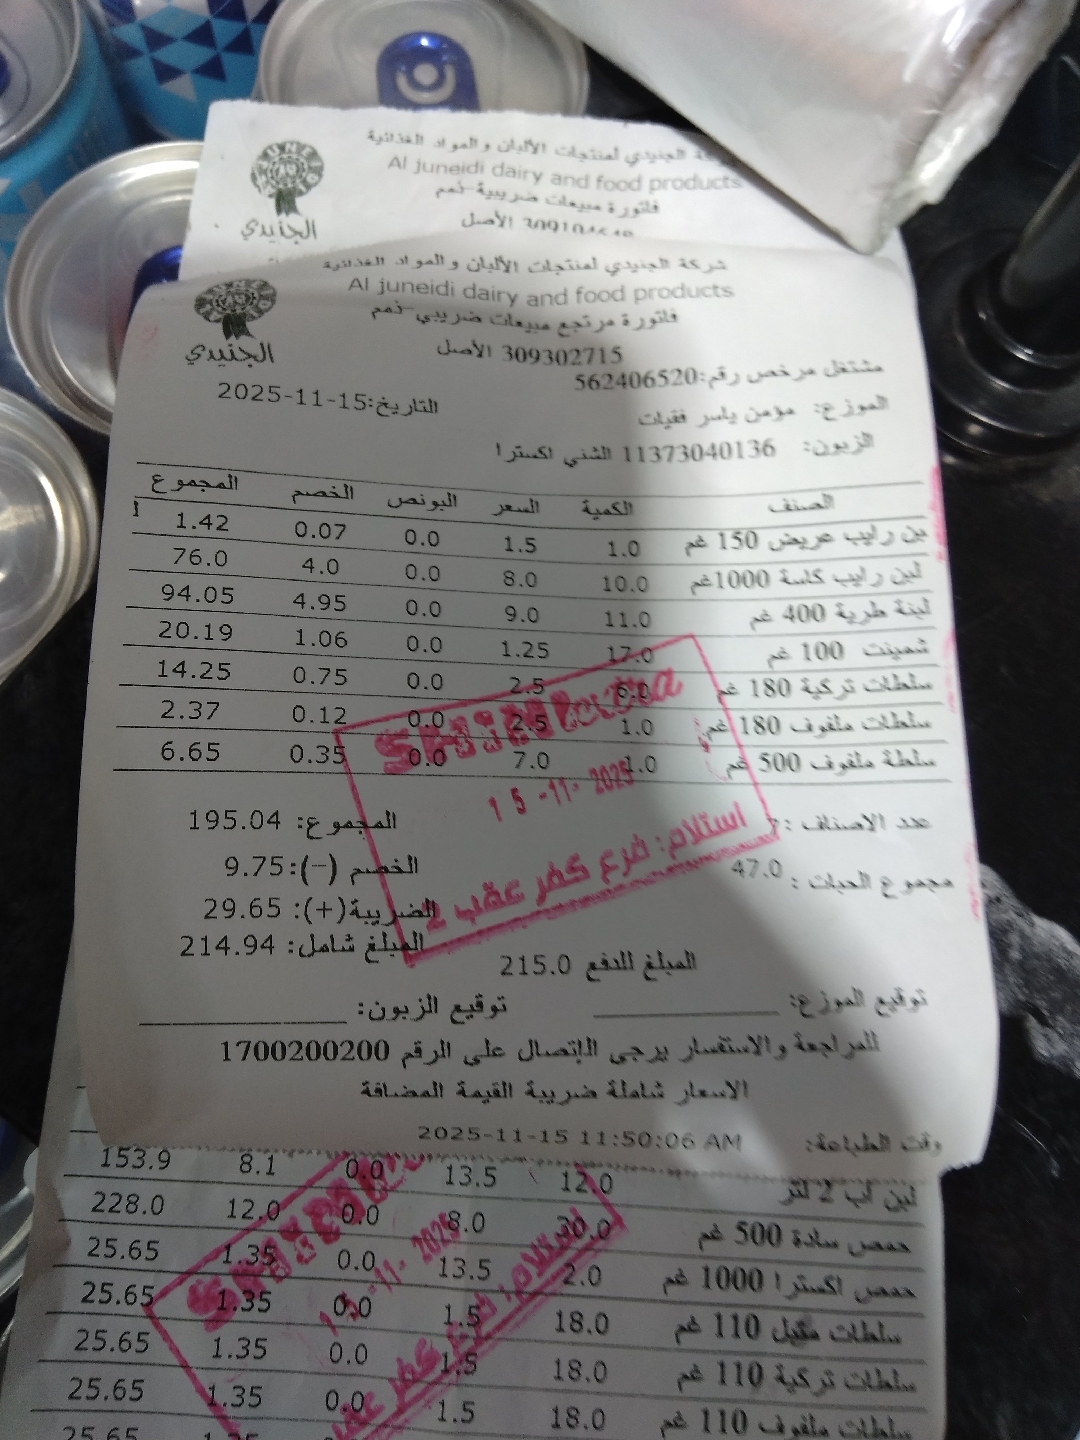 شركة الجنيدي لمنتجات الألبان والمواد الغذائية
Al juneidi dairy and food products
فاتورة مبيعات ضريبية-ذمم
الأصل
الجنيدي
شركة الجنيدي لمنتجات الألبان والمواد الغذائية
Al juneidi dairy and food products
فاتورة مرتجع مبيعات ضريبي-ذمم
309302715 الأصل
الجنيدي
مشتغل مرخص رقم:562406520
التاريخ:2025-11-15
الموزع: مؤمن ياسر فقيات
الزبون: 11373040136 الشني اكسترا
الصنف الكمية السعر البونص الخصم المجموع
بن رايب عريض 150 غم 1.0 1.5 0.0 0.07 1.42
لبن رايب كاسة 1000غم 10.0 8.0 0.0 4.0 76.0
لبنة طرية 400 غم 11.0 9.0 0.0 4.95 94.05
شمينت 100 غم 17.0 1.25 0.0 1.06 20.19
سلطات تركية 180 غم 6.0 2.5 0.0 0.75 14.25
سلطات ملفوف 180 غم 1.0 2.5 0.0 0.12 2.37
سلطة ملفوف 500 غم 1.0 7.0 0.0 0.35 6.65
15 -11- 2025
استلام: فرع كفر عقب 2
عدد الاصناف : 7
المجموع: 195.04
مجموع الحبات : 47.0
الخصم (-): 9.75
الضريبة(+): 29.65
المبلغ شامل: 214.94
المبلغ للدفع 215.0
توقيع الموزع: ____________ توقيع الزبون: ____________
للمراجعة والاستفسار يرجى الإتصال على الرقم 1700200200
الاسعار شاملة ضريبة القيمة المضافة
وقت الطباعة: 2025-11-15 11:50:06 AM
لبن اب 2 لتر 12.0 13.5 0.0 8.1 153.9
حمص سادة 500 غم 30.0 8.0 0.0 12.0 228.0
حمص اكسترا 1000 غم 2.0 13.5 0.0 1.35 25.65
سلطات 110 غم 18.0 1.5 0.0 1.35 25.65
سلطات تركية 110 غم 18.0 1.5 0.0 1.35 25.65
سلطات ملفوف 110 غم 18.0 1.5 0.0 1.35 25.65
25.65